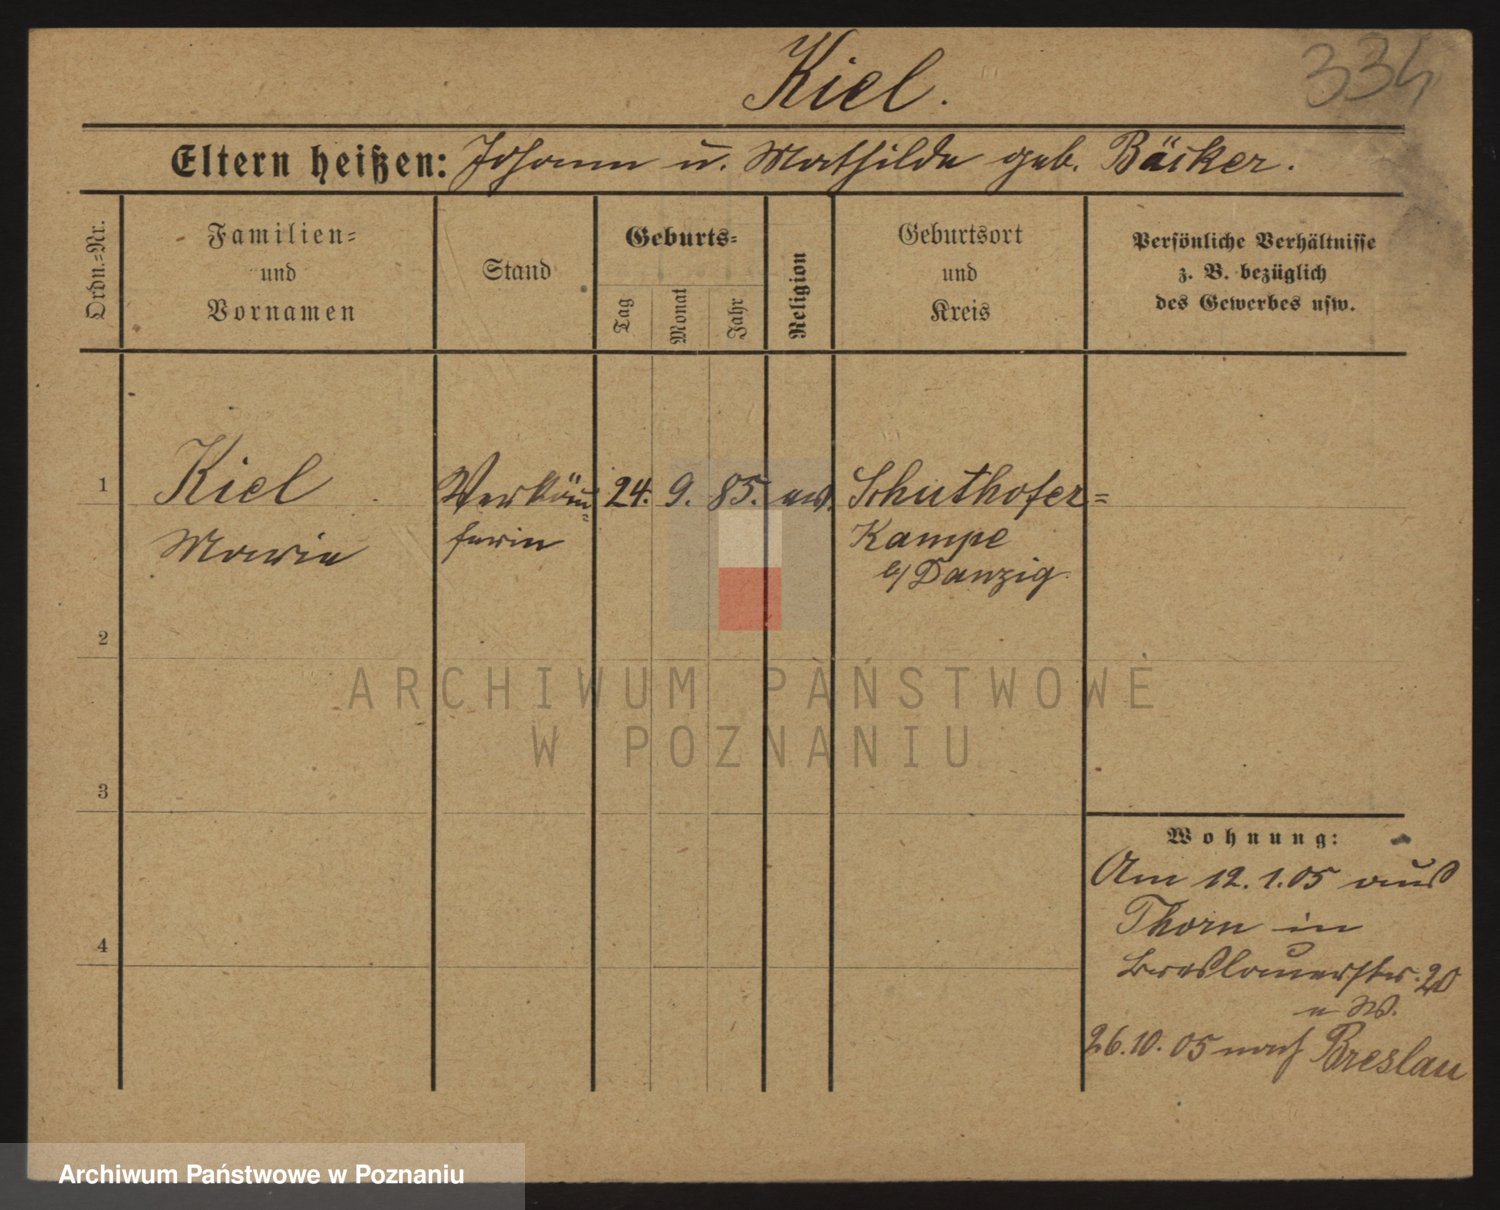 Kiel.
334
Eltern heißen: Johann u. Mathilde geb. Bäcker.
Ordn.=Nr.
Familien=
und
Vornamen
Stand
Geburts=
Tag
Monat
Jahr
Religion
Geburtsort
und
Kreis
Persönliche Verhältnisse
z. B. bezüglich
des Gewerbes usw.
1
Kiel
Marie
Verkäu=
ferin
24. 9. 85. ev.
Schuthofer=
Kampe
b/ Danzig
2
3
4
ARCHIWUM PAŃSTWOWE
W POZNANIU
Wohnung:
Am 12.1.05 aus
Thorn in
Breslauerstr. 20
26.10.05 nach Breslau
Archiwum Państwowe w Poznaniu